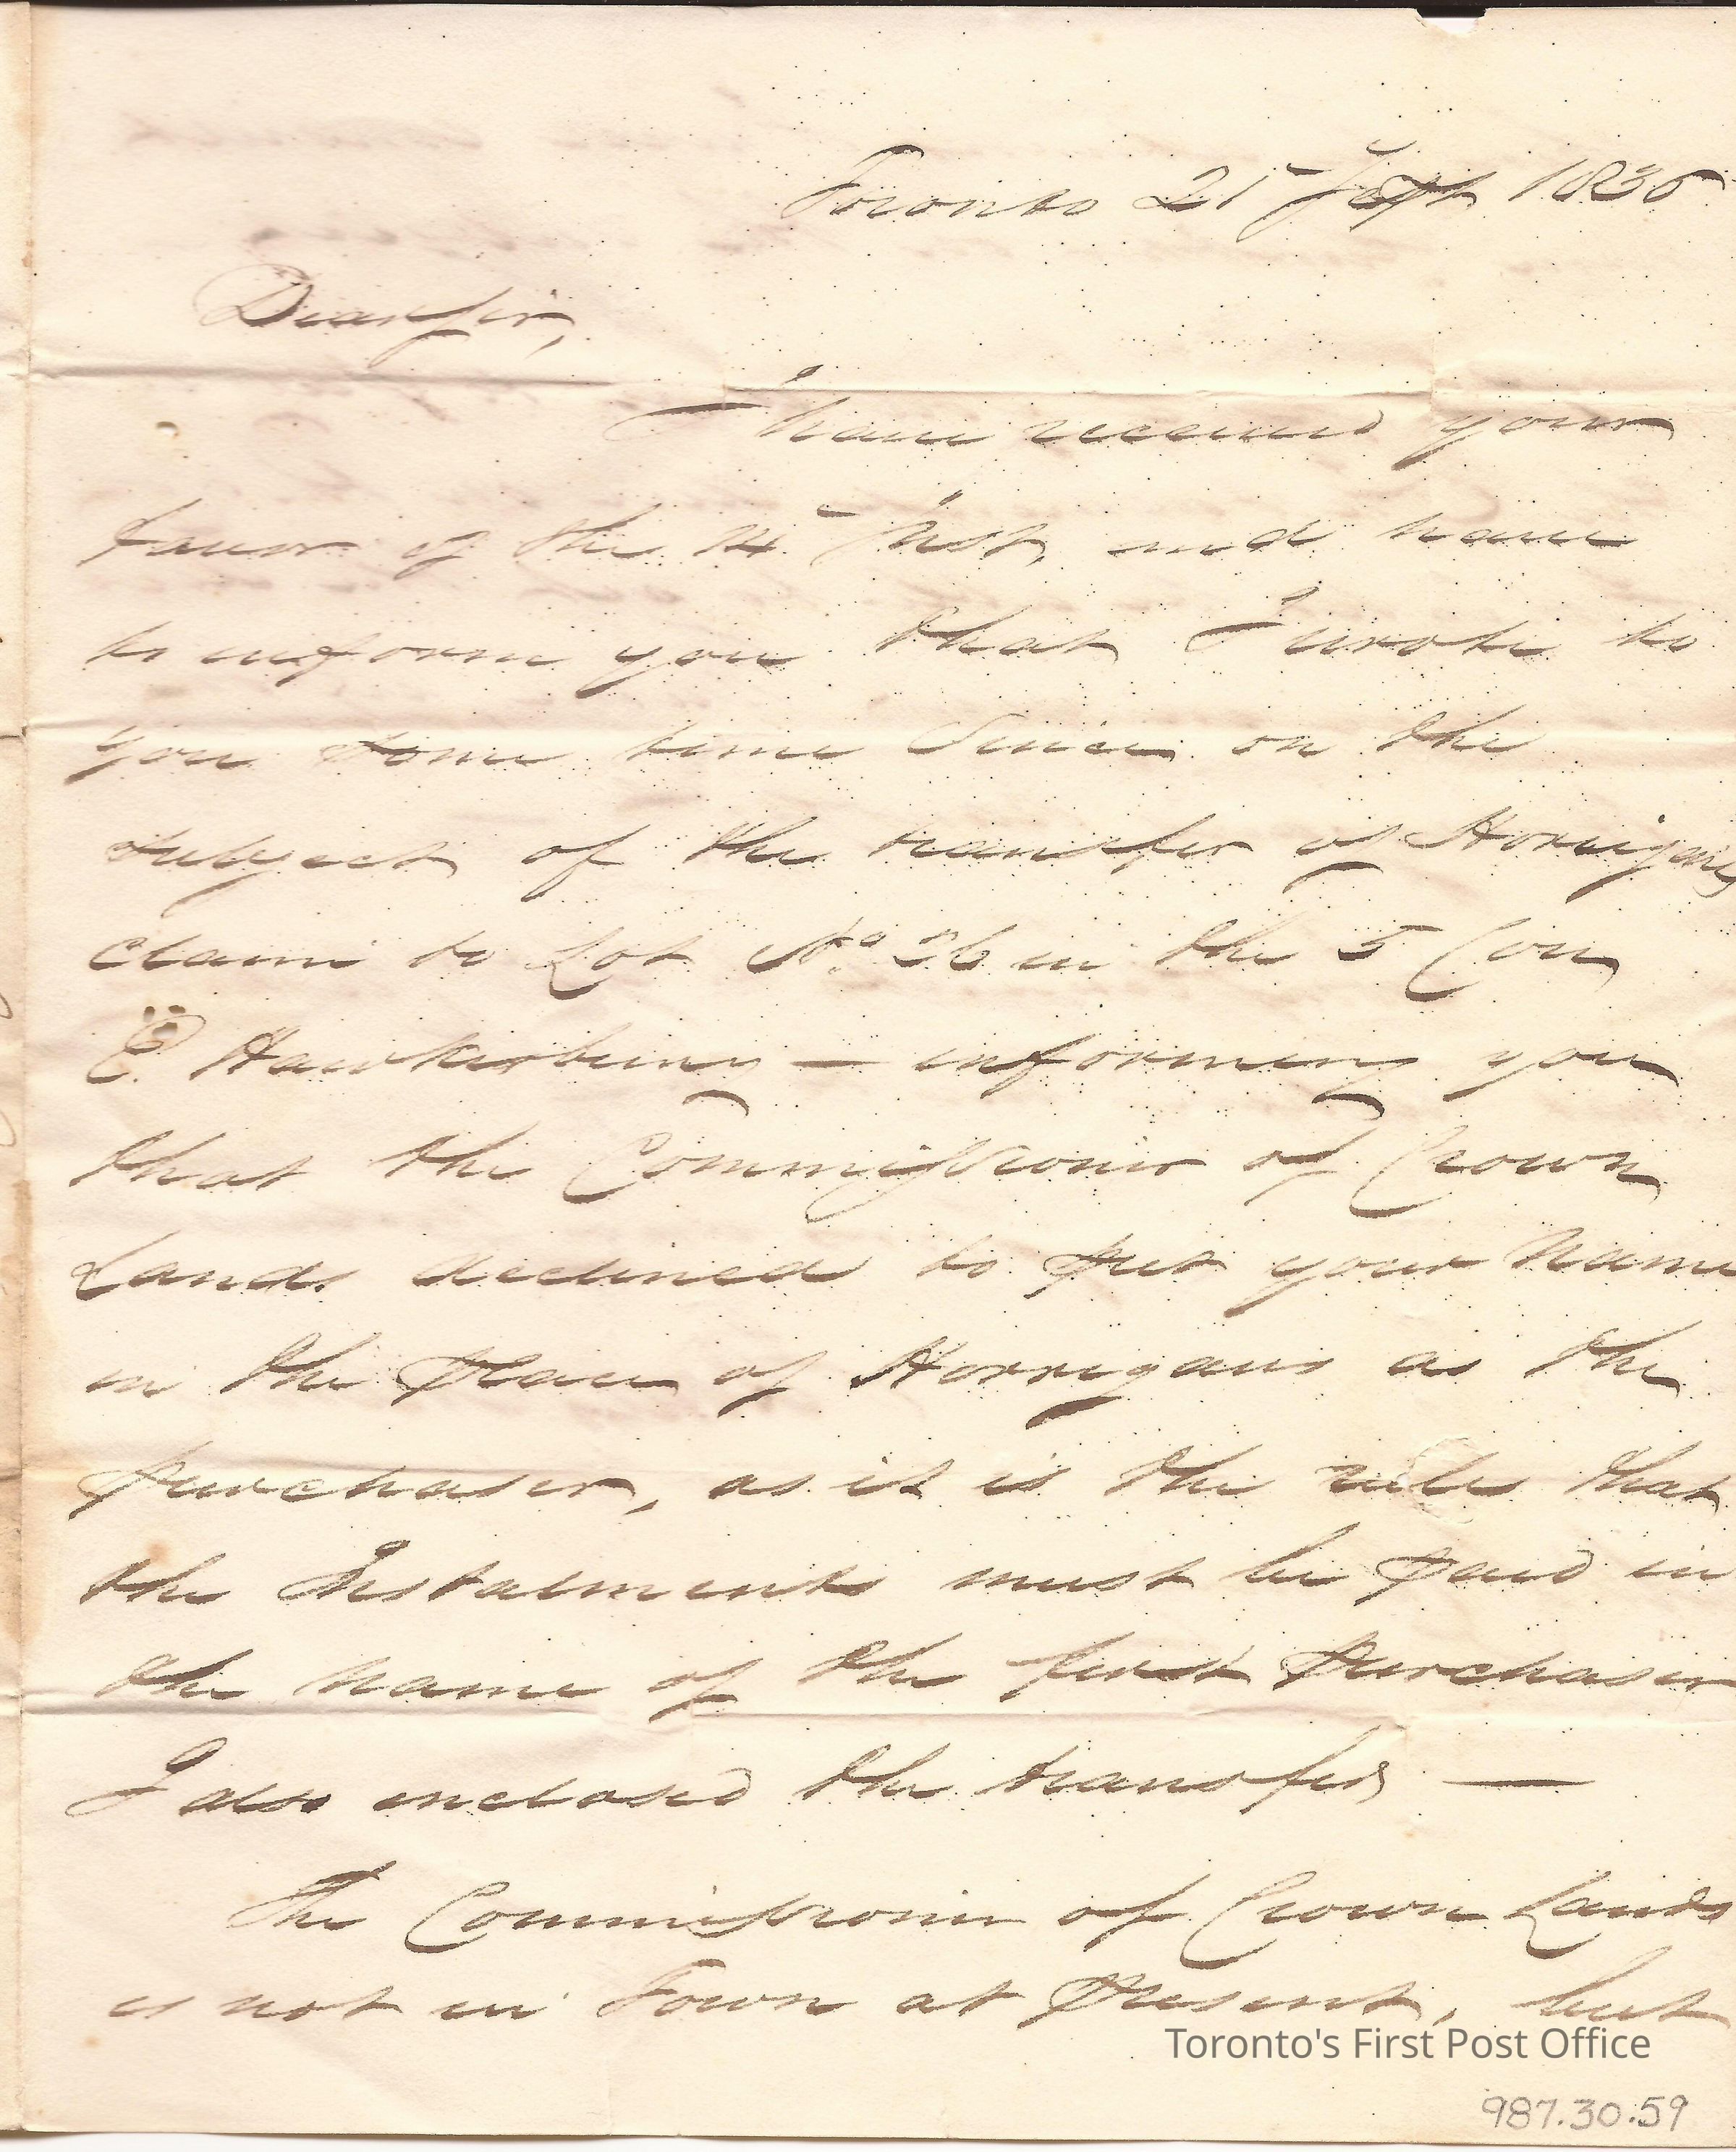 Toronto 21 Sept 1836
Dear Sir,
I have received your
favor of the 14 Inst, and have
to inform you that I wrote to
you some time Since on the
subject of the transfer of Horrigans
claim to Lot No. 26 in the 5 Con
E. Hawkesbury — informing you
that the Commissioner of Crown
Lands declined to put your Name
in the place of Horrigans as the
purchaser, as it is the rule that
the Instalments must be paid in
the Name of the first Purchaser
I also enclosed the transfer —
The Commissioner of Crown Lands
is not in Town at Present, but
Toronto's First Post Office
987.30.59